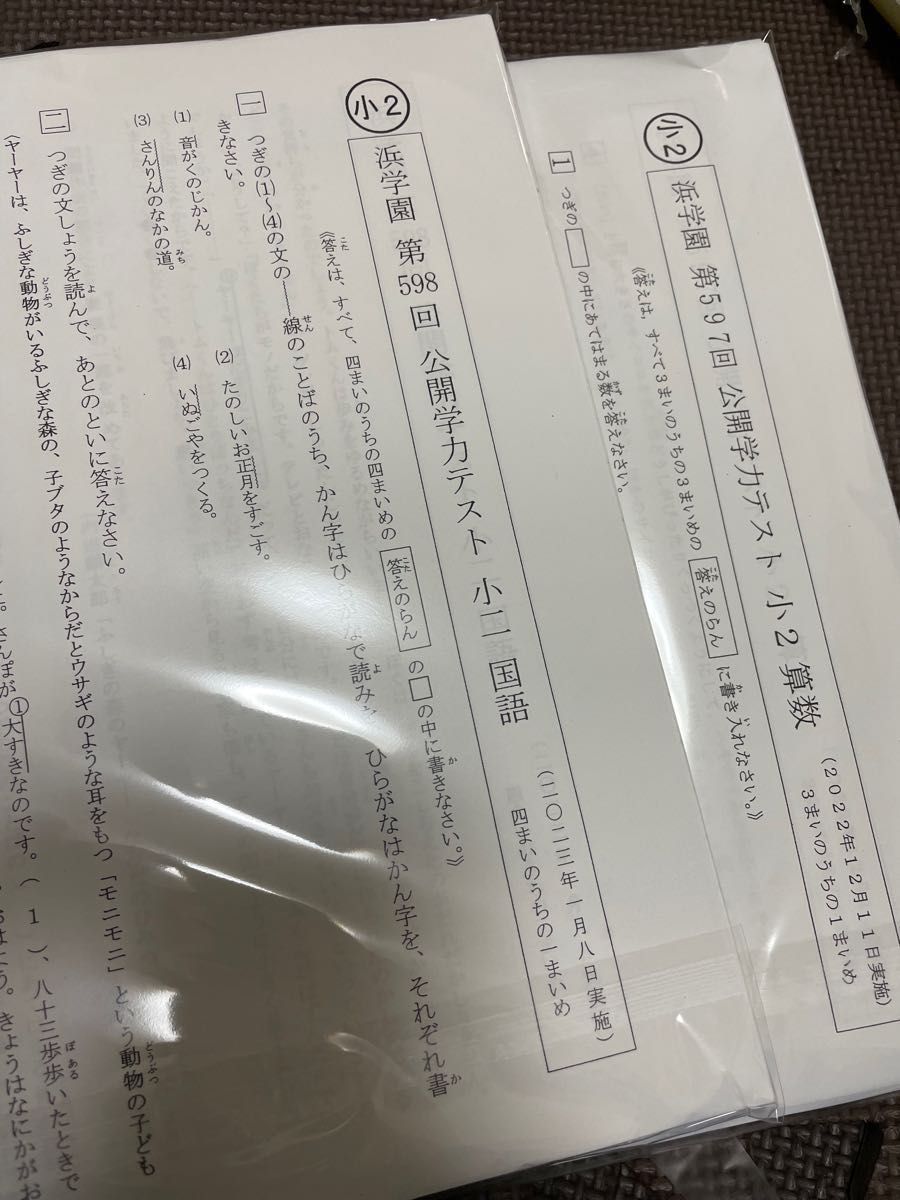 小2
浜学園 第597回 公開学力テスト 小2 算数
(2022年12月11日実施)
3まいのうちの1まいめ
《答えは、すべて3まいのうちの3まいめの 答えのらん に書き入れなさい。》
1 つぎの□の中にあてはまる数を答えなさい。
小2
浜学園 第598回 公開学力テスト 小二 国語
(二〇二三年一月八日実施)
四まいのうちの一まいめ
《答えは、すべて、四まいのうちの四まいめの 答えのらん の□の中に書きなさい。》
一 つぎの(1)～(4)の文の――線のことばのうち、かん字はひらがなで読み ひらがなはかん字を、それぞれ書
きなさい。
(1) 音がくのじかん。
(2) たのしいお正月をすごす。
(3) さんりんのなかの道。
(4) いぬごやをつくる。
二 つぎの文しょうを読んで、あとのといに答えなさい。
〈ヤーヤーは、ふしぎな動物がいるふしぎな森の、子ブタのようなからだとウサギのような耳をもつ「モニモニ」という動物の子ども
さんぽが①大すきなのです。( 1 )、八十三歩歩いたときで
はよう。きょうはなにかがお